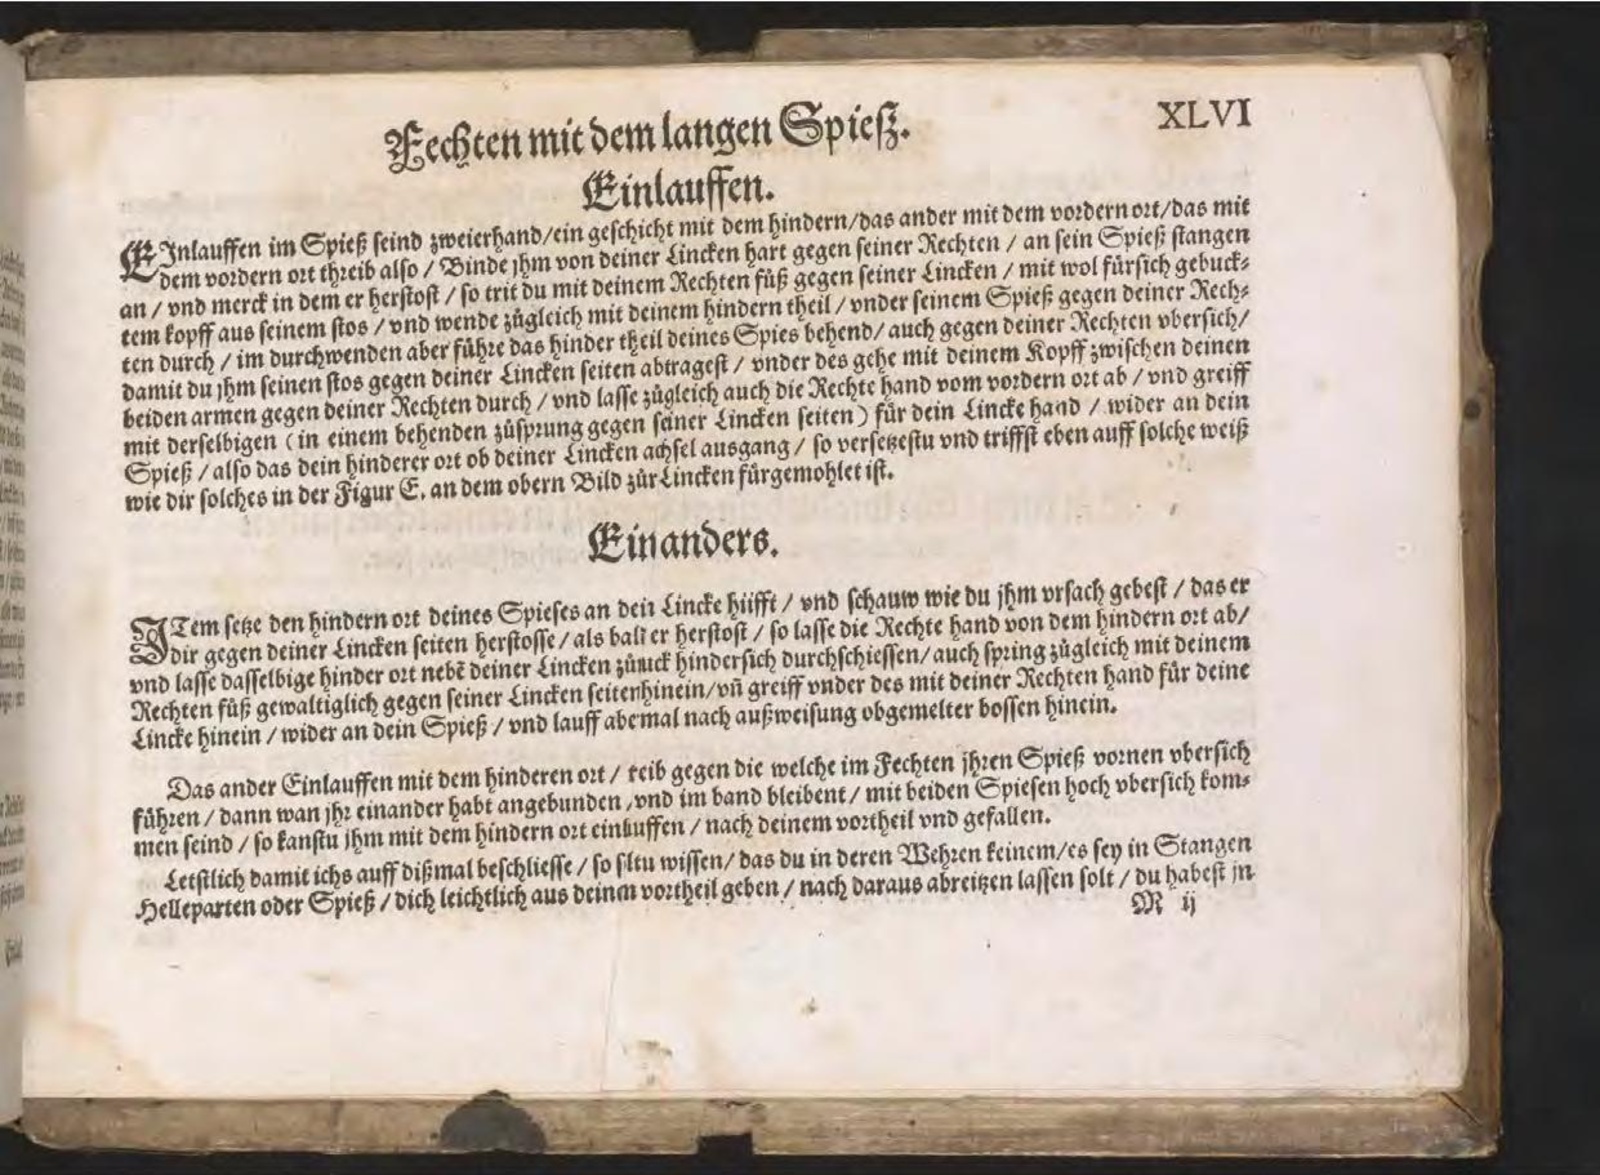 Fechten mit dem langen Spieß.
XLVI
Einlauffen.
EInlauffen im Spieß seind zweierhand/ein geschicht mit dem hindern/das ander mit dem vordern ort/das mit
dem vordern ort threib also / Binde jhm von deiner Lincken hart gegen seiner Rechten / an sein Spieß stangen
an / vnd merck in dem er herstost / so trit du mit deinem Rechten fůß gegen seiner Lincken / mit wol fürsich gebuck⸗
tem kopff aus seinem stos / vnd wende zůgleich mit deinem hindern theil / vnder seinem Spieß gegen deiner Rech⸗
ten durch / im durchwenden aber führe das hinder theil deines Spies behend/ auch gegen deiner Rechten vbersich/
damit du jhm seinen stos gegen deiner Lincken seiten abtragest / vnder des gehe mit deinem Kopff zwischen deinen
beiden armen gegen deiner Rechten durch / vnd lasse zůgleich auch die Rechte hand vom vordern ort ab / vnd greiff
mit derselbigen (in einem behenden zůsprung gegen seiner Lincken seiten) für dein Lincke hand / wider an dein
Spieß / also das dein hinderer ort ob deiner Lincken achsel ausgang / so versetzestu vnd triffst eben auff solche weiß
wie dir solches in der Figur E. an dem obern Bild zůr Lincken fürgemohlet ist.
Ein anders.
ITem setze den hindern ort deines Spieses an dein Lincke hüfft / vnd schauw wie du jhm vrsach gebest / das er
dir gegen deiner Lincken seiten herstosse / als balt er herstost / so lasse die Rechte hand von dem hindern ort ab/
vnd lasse dasselbige hinder ort nebē deiner Lincken zůruck hindersich durchschiessen/ auch spring zůgleich mit deinem
Rechten fůß gewaltiglich gegen seiner Lincken seiten hinein/vn̄ greiff vnder des mit deiner Rechten hand für deine
Lincke hinein / wider an dein Spieß / vnd lauff abermal nach außweisung obgemelter bossen hinein.
Das ander Einlauffen mit dem hinderen ort / treib gegen die welche im Fechten jhren Spieß vornen vbersich
führen / dann wan jhr einander habt angebunden, vnd im band bleibent / mit beiden Spiesen hoch vbersich kom⸗
men seind / so kanstu jhm mit dem hindern ort einlauffen / nach deinem vortheil vnd gefallen.
Letstlich damit ichs auff dißmal beschliesse / so sltu wissen/ das du in deren Wehren keinem/es sey in Stangen
Helleparten oder Spieß / dich leichtlich aus deinem vortheil geben / nach daraus abreitzen lassen solt / du habest jn
M ij